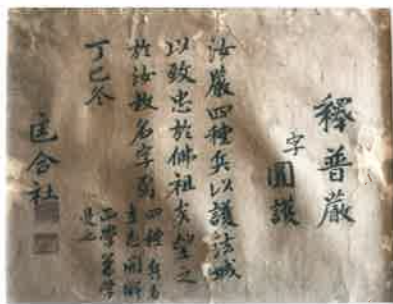 釋普嚴
字
圓護
汝嚴四種兵以護法城
以致忠於佛祖矣望之
於汝故名字爾
四種兵者
丁巳冬
匡合社